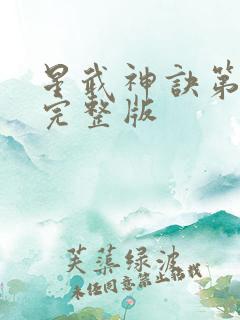 星武神訣第
完整版
芙蕖绿波
未经同意禁止转载